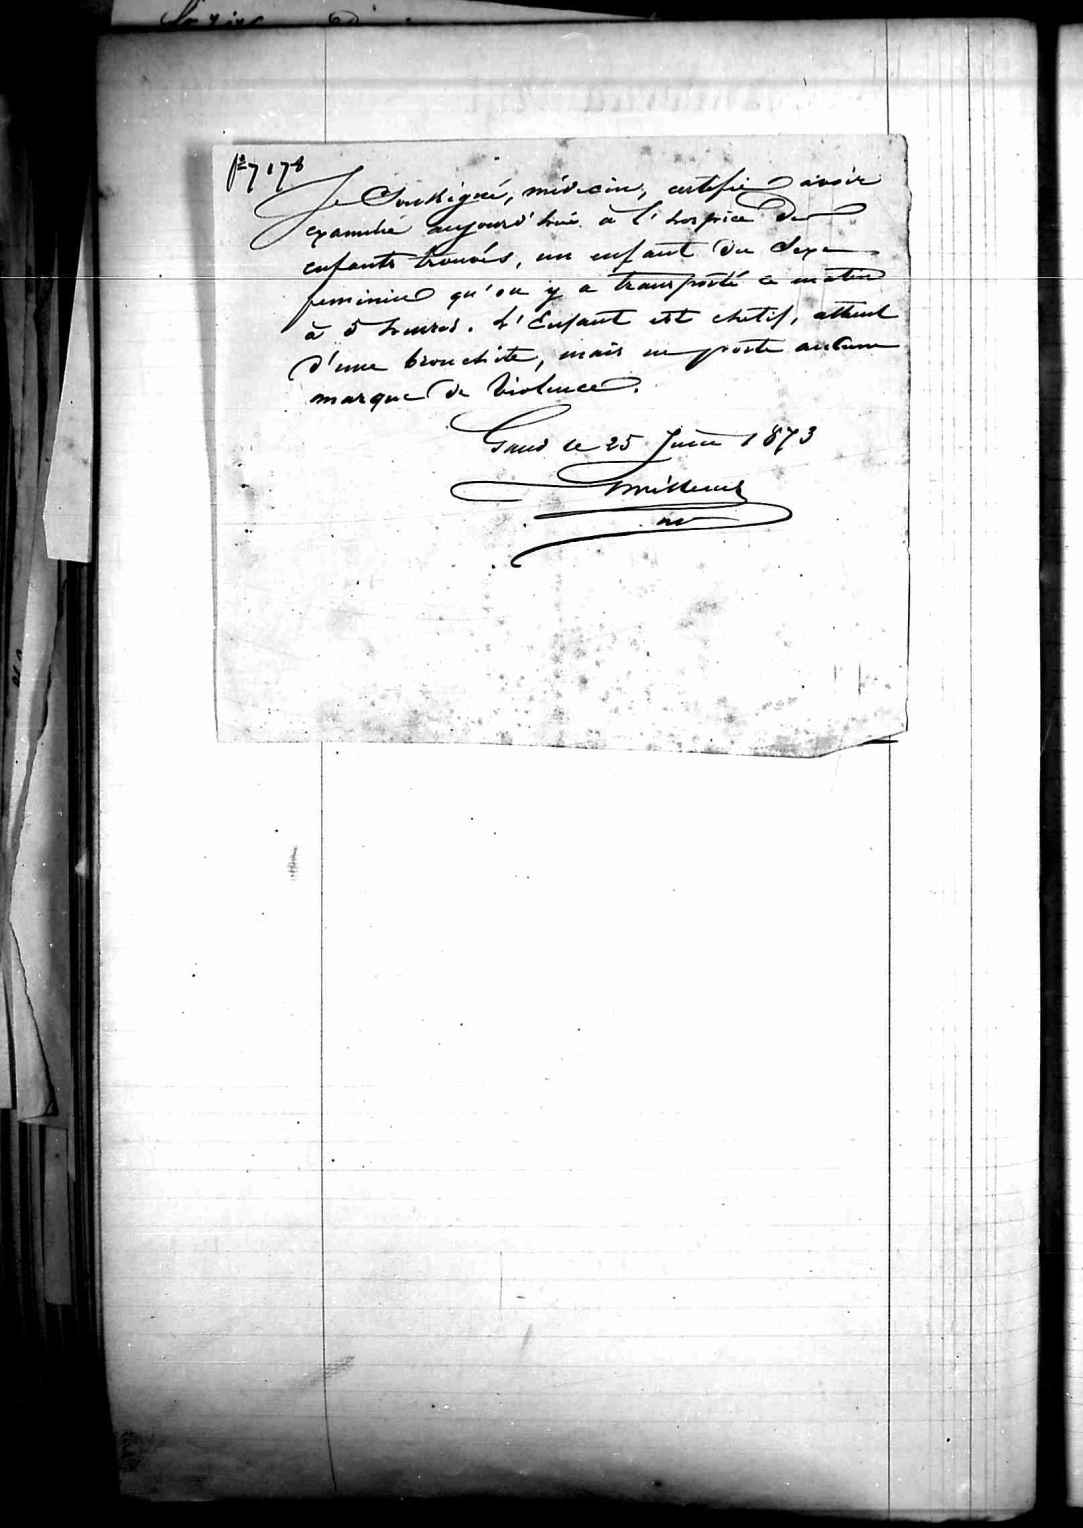 7178
Je Soussigné, médecin, certifie avoir
examiné aujourd'hui à l'hospice des
enfants trouvés, un enfant du Sexe
feminin qu'on y a transporté ce matin
à 5 heures. L'Enfant est chétif, atteint
d'une bronchite, mais ne porte aucune
marque de Violence.
Gand le 25 Juin 1873